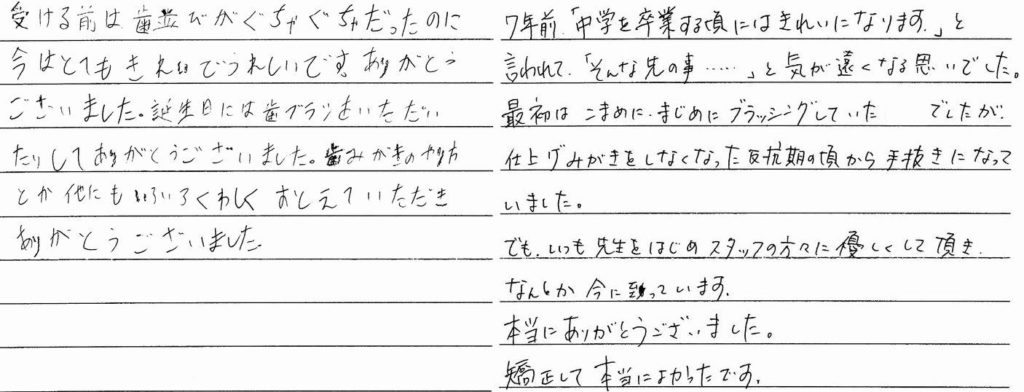 受ける前は歯並びがぐちゃぐちゃだったのに
今はとてもきれいでうれしいです。ありがとう
ございました。誕生日には歯ブラシをいただい
たりしてありがとうございました。歯みがきのやり方
とか他にもいろいろくわしくおしえていただき
ありがとうございました
7年前、「中学を卒業する頃にはきれいになります。」と
言われて、「そんな先の事……」と気が遠くなる思いでした。
最初はこまめに・まじめにブラッシングしていた でしたが、
仕上げみがきをしなくなった反抗期の頃から手抜きになって
いました。
でも、いつも先生をはじめスタッフの方々に優しくして頂き、
なんとか今に至っています。
本当にありがとうございました。
矯正して本当によかったです。